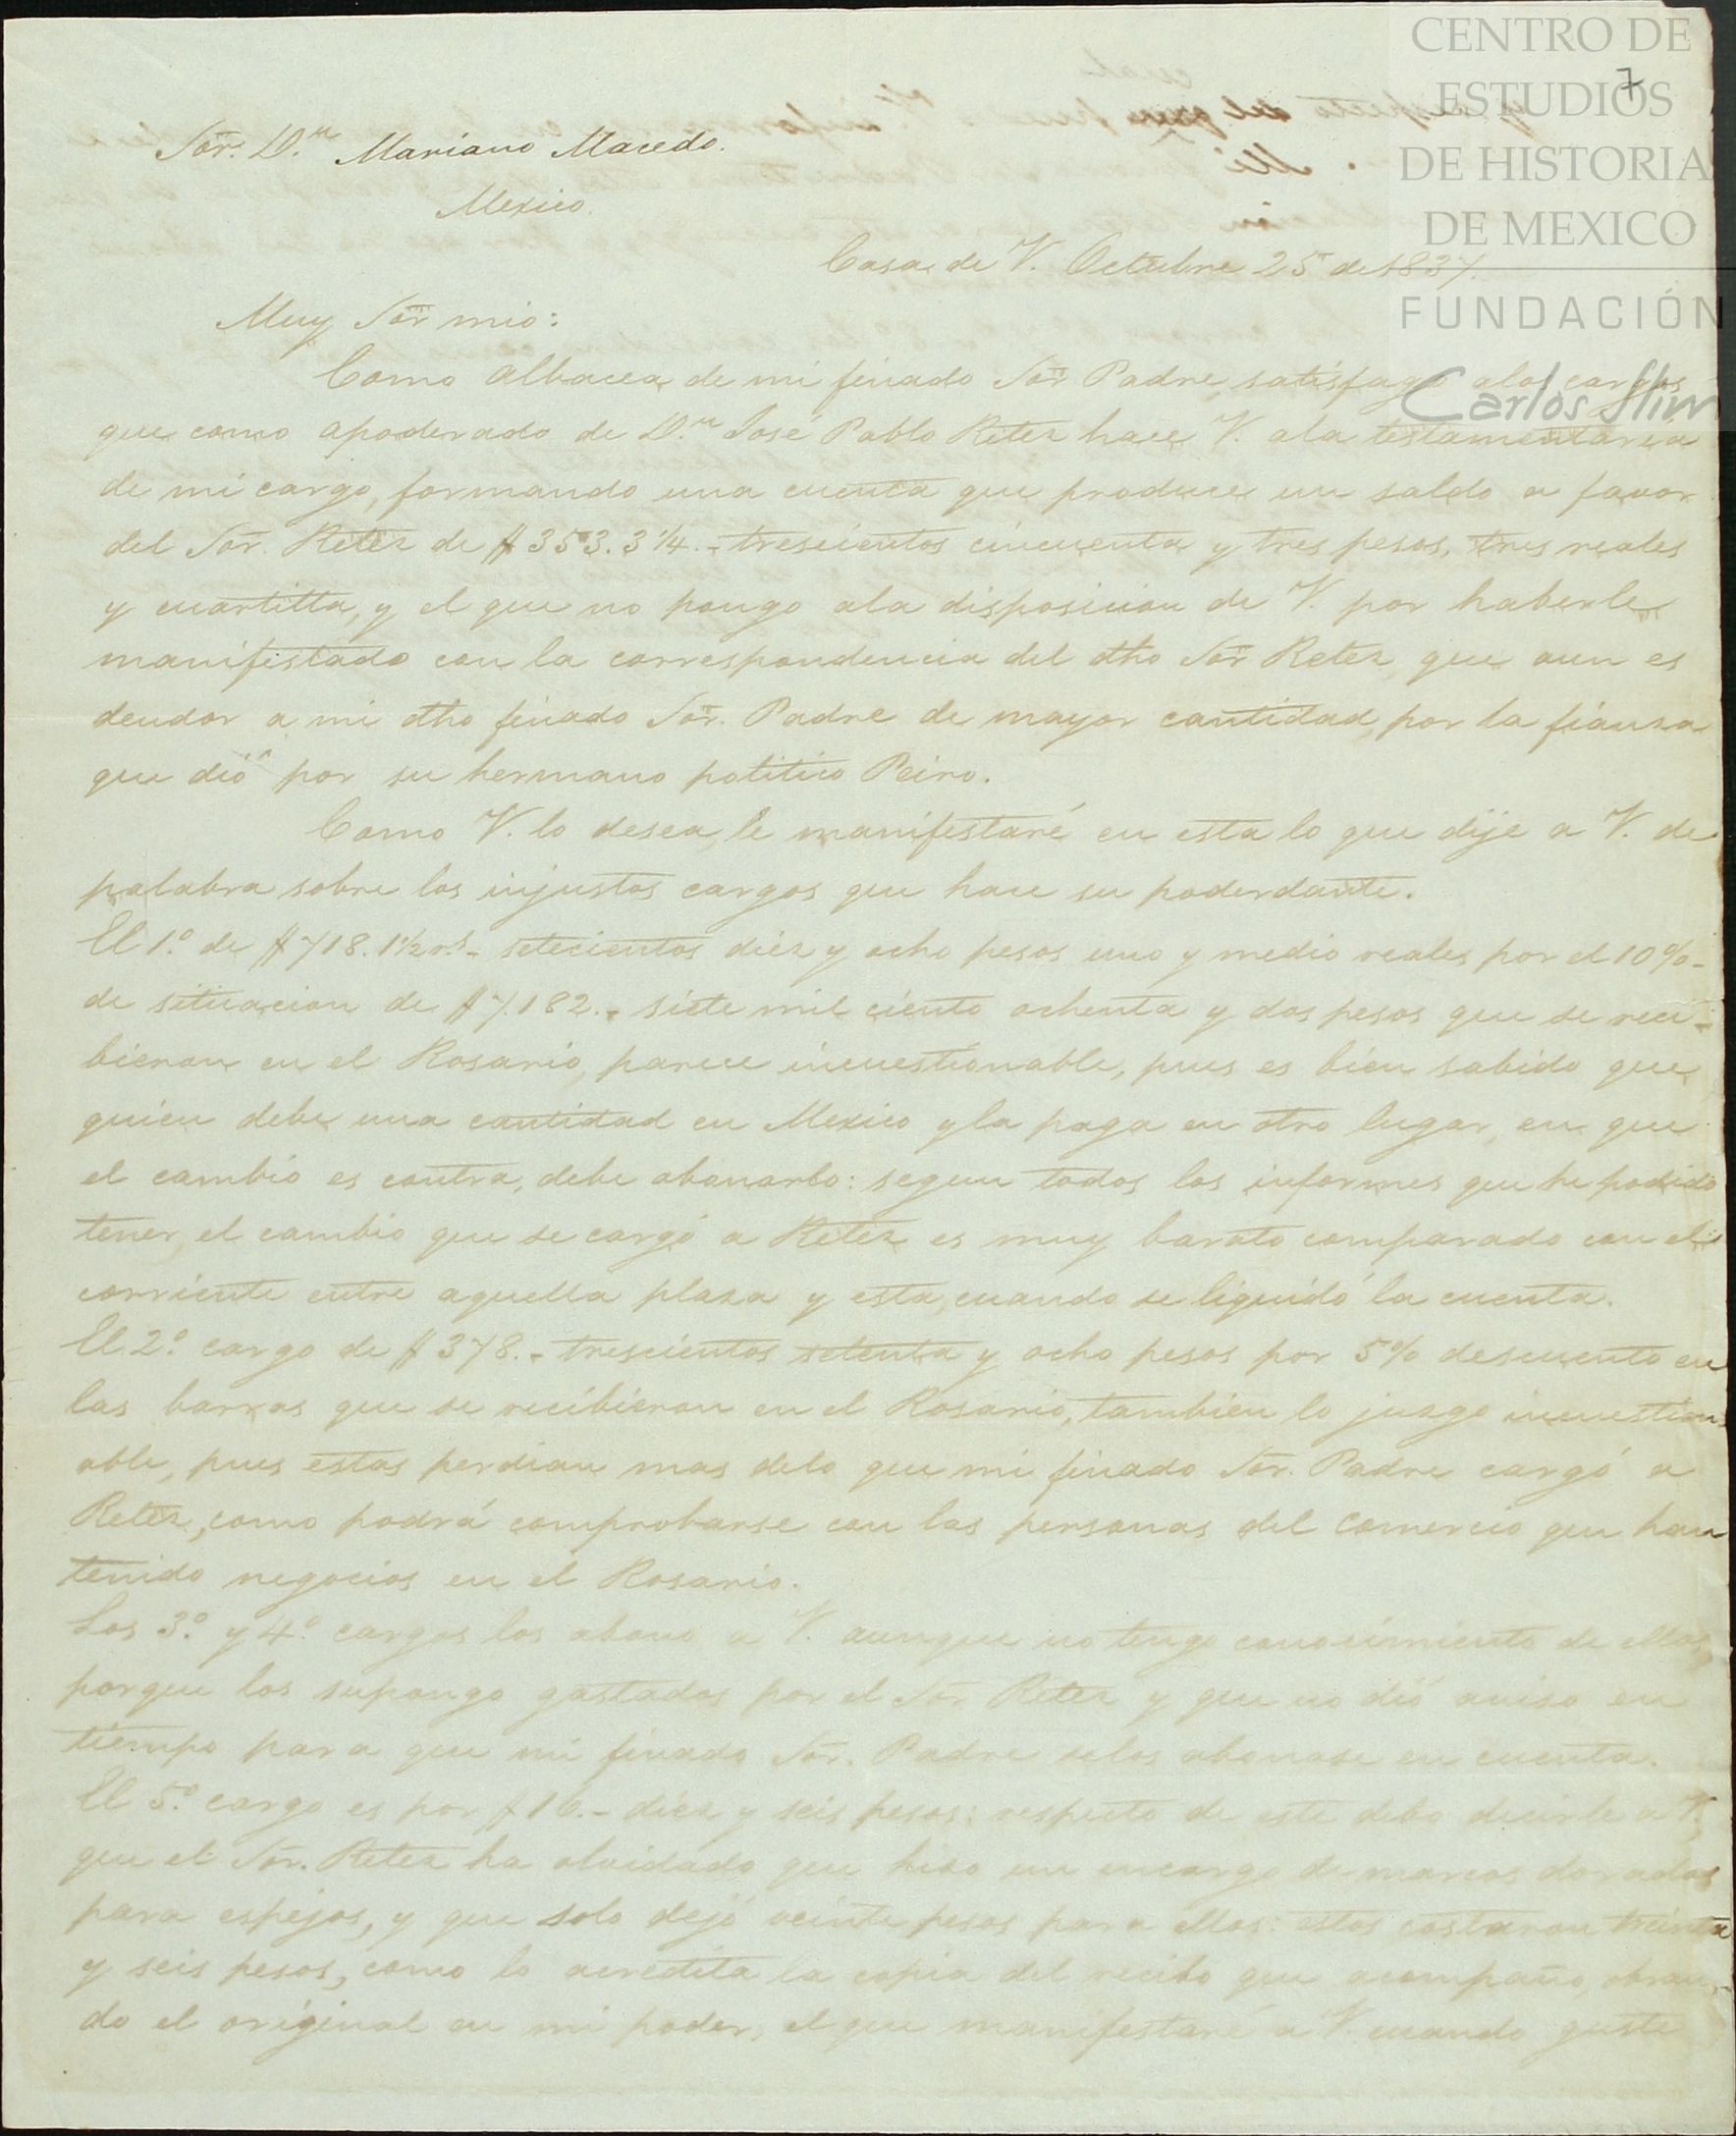 CENTRO DE
ESTUDIOS
DE HISTORIA
DE MEXICO
FUNDACIÓN
Carlos Slim
7
Sor. D.n Mariano Macedo.
Mexico.
Casa de V. Octubre 25 de 1837.
Muy Sor mio:
Como albacea de mi finado Sor Padre, satisfago a los cargos
que como apoderado de D.n José Pablo Retez hace V. ala testamentaria
de mi cargo, formando una cuenta que produce un saldo a favor
del Sor. Retez de $353.3¼.- trescientos cincuenta y tres pesos, tres reales
y cuartilla, y el que no pongo ala disposicion de V. por haberle
manifestado con la correspondencia del dho Sor Retez, que aun es
deudor a mi dho finado Sor. Padre de mayor cantidad, por la fianza
que dió por su hermano politico Peiro.
Como V. lo desea, le manifestaré en esta lo que dije a V. de
palabra sobre los injustos cargos que hace su poderdante.
El 1.o de $718.1½ r.s- setecientos diez y ocho pesos uno y medio reales por el 10%-
de situacion de $7.182.- siete mil ciento ochenta y dos pesos que se reci-
bieron en el Rosario, parece incuestionable, pues es bien sabido que
quien debe una cantidad en Mexico y la paga en otro lugar, en que
el cambio es contra, debe abonarlo: segun todos los informes que he podido
tener, el cambio que se cargó a Retez es muy barato comparado con el
corriente entre aquella plaza y esta, cuando se liquidó la cuenta.
El 2.o cargo de $378.- trescientos setenta y ocho pesos por 5% descuento en
las barras que se recibieron en el Rosario, tambien lo juzgo incuestion
able, pues estas perdian mas delo que mi finado Sor. Padre cargó a
Retez, como podrá comprobarse con las personas del comercio que han
tenido negocios en el Rosario.
Los 3.o y 4.o cargos los abono a V. aunque no tengo conocimiento de ellos,
porque los supongo gastados por el Sor Retez y que no dió aviso en
tiempo para que mi finado Sor. Padre selos abonase en cuenta.
El 5.o cargo es por $16.- diez y seis pesos: respecto de este debo decirle a V.
que el Sor. Retez ha olvidado que hizo un encargo de marcos dorados
para espejos, y que solo dejó veinte pesos para ellos: estos costaron treinta
y seis pesos, como lo acredita la copia del recibo que acompaño, obran-
do el original en mi poder, el que manifestaré a V. cuando guste